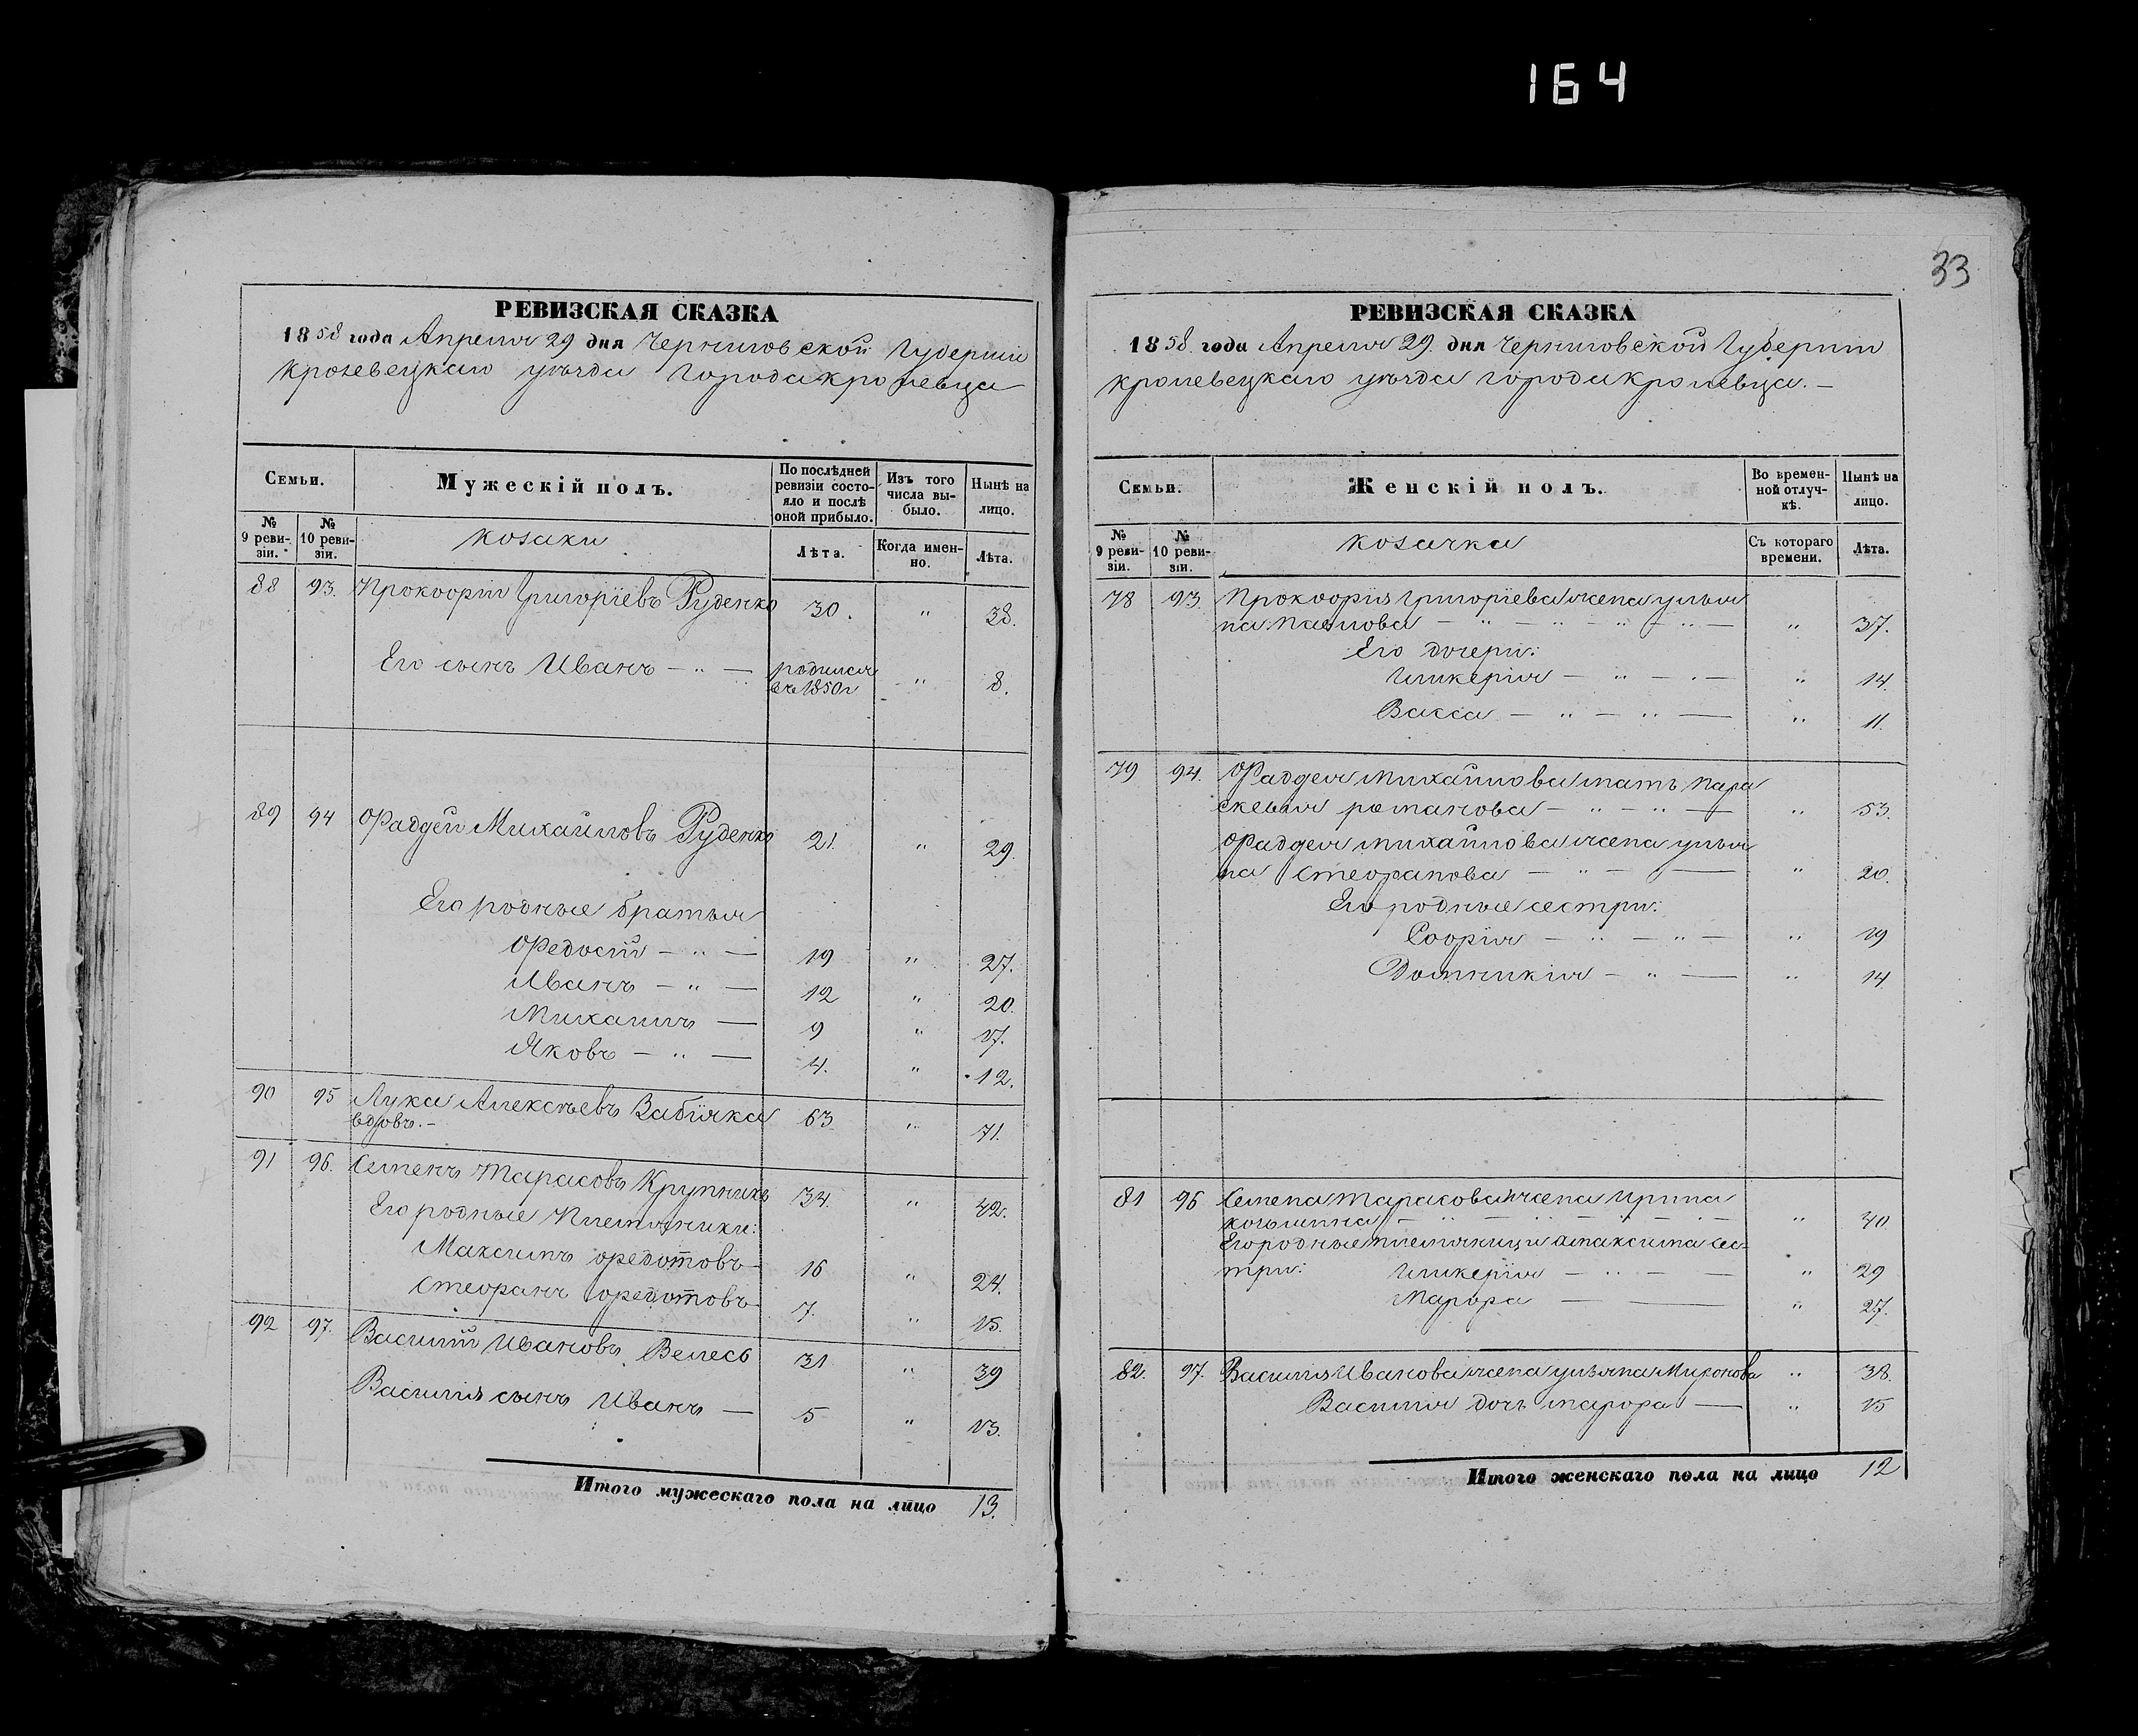 164
33
РЕВИЗСКАЯ СКАЗКА
1858 года Апреля 29 дня Черниговской Губерніи
Кролевецкаго уѣзда города Кролевца
Семьи.
Мужескій полъ.
По послѣдней ревизіи состояло и послѣ оной прибыло.
Изъ того числа выбыло.
Нынѣ на лицо.
№ 9 ревизіи.
№ 10 ревизіи.
козаки
Лѣта.
Когда именно.
Лѣта.
88 93. Прокофій Григоріевъ Руденко 30. " 38.
Его сынъ Иванъ — " — родился въ 1850 г " 8.
89 94 Фаддей Михайловъ Руденко 21. " 29.
Его родные братья
Федосій — " — 19 " 27.
Иванъ — " — 12 " 20.
Михаилъ — 9 " 17.
Яковъ — " — 4. " 12.
90 95 Лука Алексѣевъ Забіяка 63 " 71.
вдовъ. —
91 96. Семенъ Тарасовъ Крупникъ 34. " 42.
Его родные Племянники:
Максимъ Федотовъ — 16 " 24.
Стефанъ Федотовъ 7. " 15.
92 97. Василій Ивановъ Велесъ 31 " 39
Василія сынъ Иванъ — 5 " 13.
Итого мужескаго пола на лицо 13.
РЕВИЗСКАЯ СКАЗКА
1858 года Апреля 29 дня Черниговской Губерніи
Кролевецкаго уѣзда города Кролевца. —
Семьи.
Женскій полъ.
Во временной отлучкѣ.
Нынѣ на лицо.
№ 9 ревизіи.
№ 10 ревизіи.
козачки
Съ котораго времени.
Лѣта.
78 93. Прокофія Григоріева жена улья
на Павлова — " — " — " — " — " 37.
Его дочери:
Гликерія — " — " — " 14.
Васса — " — " — " 11.
79 94. Фаддея Михайлова мать Пара
скевія романова — " — " — " 53.
Фаддея михайлова жена улья
на Стефанова — " — — " 20.
Его родные сестри:
Софія — " — " — " 19
Домникія — " — " 14
81 96 Семена Тарасова жена Ирина
козьмина — " — " — " — " 40
Его родные племяницы а максима сес-
три: Гликерія — " — — " 29
Марфа — — " 27.
82. 97. Василія Иванова жена ульяна Миронова " 38.
Василія дочь марфа — " 15
Итого женскаго пола на лицо 12